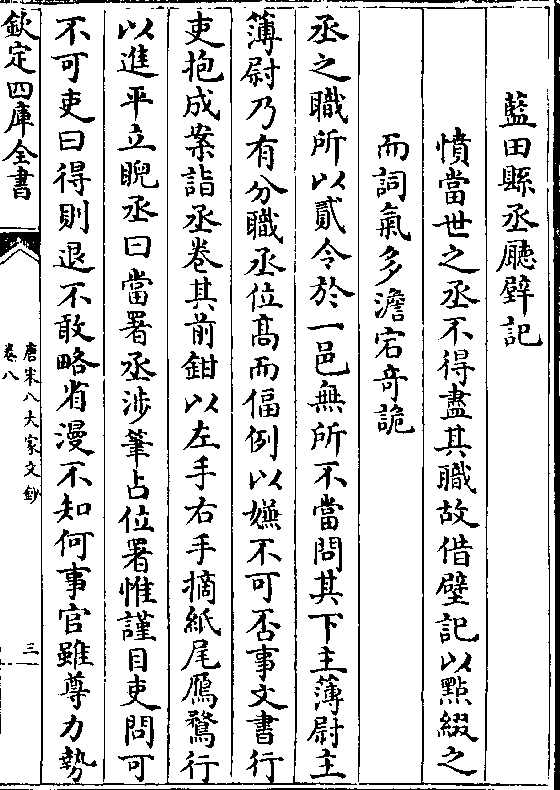 藍田縣丞廳壁記
憤當世之丞不得盡其職故借壁記以點綴之
而詞氣多澹宕奇詭
丞之職所以貳令於一邑無所不當問其下主薄尉主
薄尉乃有分職丞位髙而偪例以嫌不可否事文書行
吏抱成案詣丞卷其前鉗以左手右手摘紙尾鴈鶩行
以進平立睨丞曰當署丞涉筆占位署惟謹目吏問可
不可吏曰得則退不敢略省漫不知何事官雖尊力勢
欽定四庫全書
唐宋八大家文鈔
卷八
三